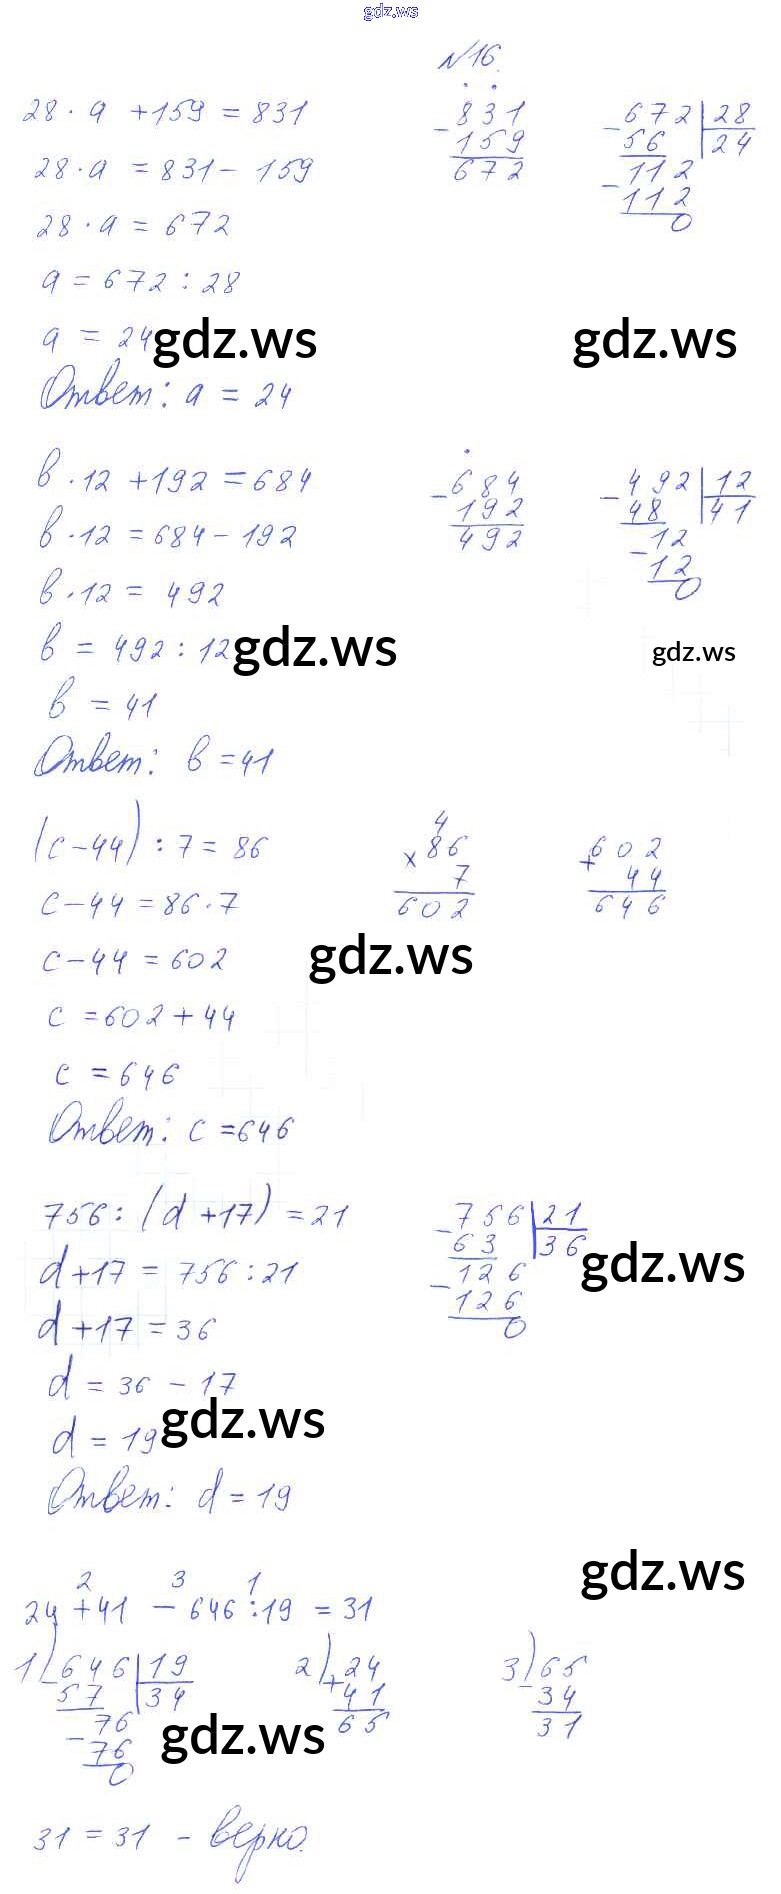 gdz.ws
№16.
28 · a + 159 = 831
28 · a = 831 - 159
28 · a = 672
a = 672 : 28
a = 24
Ответ: a = 24
- 831
159
672
- 672 | 28
56 | 24
- 112
112
0
gdz.ws
gdz.ws
в · 12 + 192 = 684
в · 12 = 684 - 192
в · 12 = 492
в = 492 : 12
в = 41
Ответ: в = 41
- 684
192
492
- 492 | 12
48 | 41
- 12
12
0
gdz.ws
gdz.ws
(c - 44) : 7 = 86
c - 44 = 86 · 7
c - 44 = 602
c = 602 + 44
c = 646
Ответ: c = 646
4
x 86
7
602
+ 602
44
646
gdz.ws
756 : (d + 17) = 21
d + 17 = 756 : 21
d + 17 = 36
d = 36 - 17
d = 19
Ответ: d = 19
- 756 | 21
63 | 36
- 126
126
0
gdz.ws
gdz.ws
gdz.ws
2 3 1
24 + 41 - 646 : 19 = 31
1) - 646 | 19
57 | 34
- 76
76
0
2) + 24
41
65
3) - 65
34
31
gdz.ws
31 = 31 - верно.